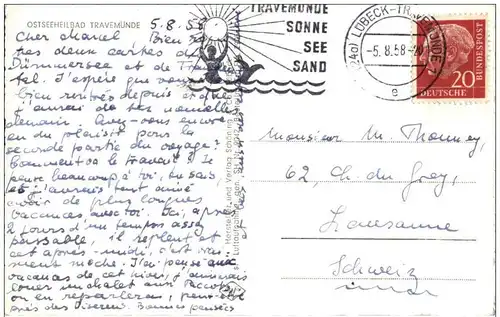 OSTSEEHEILBAD TRAVEMÜNDE
5.8.58
Cher Marcel Bien
tes deux cartes du
Dümmersee et de
fel. J'espère que vous
bien rentrés depuis et que
j'aurai de tes nouvelles
demain. Avez-vous encore
eu du plaisir pour la
seconde partie du voyage?
Comment va le travail? Je
pense beaucoup à toi, tu sais,
et j'aurais tant aimé
avoir de plus longues
vacances avec toi. Ici, après
2 jours d'un temps assez
passable, il repleut et
cet après-midi, c'est
moche. J'ai pensé aux
vacances de cet hiver, j'aimerais
louer un chalet
on en reparlera, peut-être
près des Diserens. Bonnes pensées
TRAVEMÜNDE
SONNE
SEE
SAND
(24a) LÜBECK-TRAVEMÜNDE
-5.8.58-20
e
20
DEUTSCHE
BUNDESPOST
Hersteller und Verlag Schöning & Co
Monsieur M. Thonney,
62, Ch. du Grey,
Lausanne
Schweiz